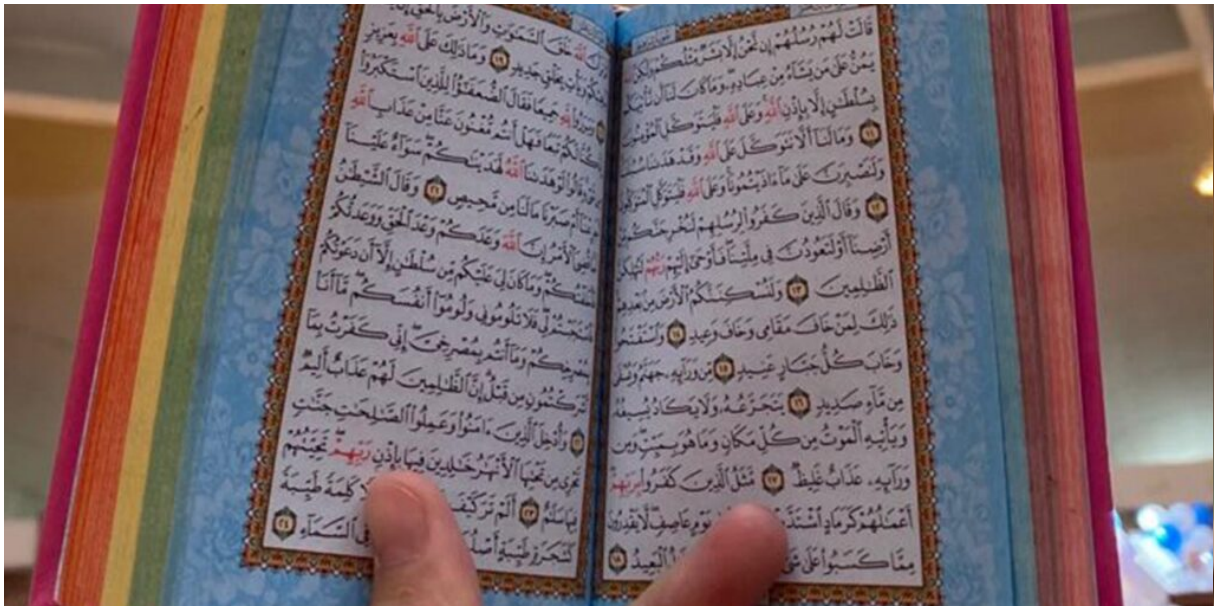 قَالَتْ لَهُمْ رُسُلُهُمْ إِن نَّحْنُ إِلَّا بَشَرٌ مِّثْلُكُمْ وَلَٰكِنَّ
يَمُنُّ عَلَىٰ مَن يَشَآءُ مِنْ عِبَادِهِۦ ۖ وَمَا كَانَ لَنَآ أَن نَّأْتِيَكُم
بِسُلْطَٰنٍ إِلَّا بِإِذْنِ ٱللَّهِ ۚ وَعَلَى ٱللَّهِ فَلْيَتَوَكَّلِ ٱلْمُؤْمِنُونَ
١١ وَمَا لَنَآ أَلَّا نَتَوَكَّلَ عَلَى ٱللَّهِ وَقَدْ هَدَىٰنَا سُبُلَنَا
وَلَنَصْبِرَنَّ عَلَىٰ مَآ ءَاذَيْتُمُونَا ۚ وَعَلَى ٱللَّهِ فَلْيَتَوَكَّلِ ٱلْمُتَوَكِّلُونَ
١٢ وَقَالَ ٱلَّذِينَ كَفَرُوا۟ لِرُسُلِهِمْ لَنُخْرِجَنَّكُم مِّنْ
أَرْضِنَآ أَوْ لَتَعُودُنَّ فِى مِلَّتِنَا ۖ فَأَوْحَىٰٓ إِلَيْهِمْ رَبُّهُمْ لَنُهْلِكَنَّ
ٱلظَّٰلِمِينَ ١٣ وَلَنُسْكِنَنَّكُمُ ٱلْأَرْضَ مِنۢ بَعْدِهِمْ
ذَٰلِكَ لِمَنْ خَافَ مَقَامِى وَخَافَ وَعِيدِ ١٤ وَٱسْتَفْتَحُوا۟
وَخَابَ كُلُّ جَبَّارٍ عَنِيدٍ ١٥ مِّن وَرَآئِهِۦ جَهَنَّمُ وَيُسْقَىٰ
مِن مَّآءٍ صَدِيدٍ ١٦ يَتَجَرَّعُهُۥ وَلَا يَكَادُ يُسِيغُهُۥ
وَيَأْتِيهِ ٱلْمَوْتُ مِن كُلِّ مَكَانٍ وَمَا هُوَ بِمَيِّتٍ ۖ وَمِن
وَرَآئِهِۦ عَذَابٌ غَلِيظٌ ١٧ مَّثَلُ ٱلَّذِينَ كَفَرُوا۟ بِرَبِّهِمْ
أَعْمَٰلُهُمْ كَرَمَادٍ ٱشْتَدَّتْ يَوْمٍ عَاصِفٍ ۖ لَّا يَقْدِرُونَ
مِمَّا كَسَبُوا۟ عَلَىٰ ٱلْبَعِيدُ ١٨
ٱللَّهَ خَلَقَ ٱلسَّمَٰوَٰتِ وَٱلْأَرْضَ بِٱلْحَقِّ ۚ إِن
وَيَأْتِ بِخَلْقٍ جَدِيدٍ ١٩ وَمَا ذَٰلِكَ عَلَى ٱللَّهِ بِعَزِيزٍ
٢٠ وَبَرَزُوا۟ لِلَّهِ جَمِيعًا فَقَالَ ٱلضُّعَفَٰٓؤُا۟ لِلَّذِينَ ٱسْتَكْبَرُوٓا۟
كُنَّا لَكُمْ تَبَعًا فَهَلْ أَنتُم مُّغْنُونَ عَنَّا مِنْ عَذَابِ ٱللَّهِ
قَالُوا۟ لَوْ هَدَىٰنَا ٱللَّهُ لَهَدَيْنَٰكُمْ ۖ سَوَآءٌ عَلَيْنَآ
أَمْ صَبَرْنَا مَا لَنَا مِن مَّحِيصٍ ٢١ وَقَالَ ٱلشَّيْطَٰنُ
قُضِىَ ٱلْأَمْرُ إِنَّ ٱللَّهَ وَعَدَكُمْ وَعْدَ ٱلْحَقِّ وَوَعَدتُّكُمْ
فَأَخْلَفْتُكُمْ ۖ وَمَا كَانَ لِىَ عَلَيْكُم مِّن سُلْطَٰنٍ إِلَّآ أَن دَعَوْتُكُمْ
فَٱسْتَجَبْتُمْ لِى ۖ فَلَا تَلُومُونِى وَلُومُوٓا۟ أَنفُسَكُم ۖ مَّآ أَنَا۠
بِمُصْرِخِكُمْ وَمَآ أَنتُم بِمُصْرِخِىَّ ۖ إِنِّى كَفَرْتُ بِمَآ
أَشْرَكْتُمُونِ مِن قَبْلُ ۗ إِنَّ ٱلظَّٰلِمِينَ لَهُمْ عَذَابٌ أَلِيمٌ
٢٢ وَأُدْخِلَ ٱلَّذِينَ ءَامَنُوا۟ وَعَمِلُوا۟ ٱلصَّٰلِحَٰتِ جَنَّٰتٍ
تَجْرِى مِن تَحْتِهَا ٱلْأَنْهَٰرُ خَٰلِدِينَ فِيهَا بِإِذْنِ رَبِّهِمْ ۖ تَحِيَّتُهُمْ
فِيهَا سَلَٰمٌ ٢٣ أَلَمْ تَرَ كَيْفَ كَلِمَةً طَيِّبَةً
كَشَجَرَةٍ طَيِّبَةٍ أَصْلُهَا فِى ٱلسَّمَآءِ ٢٤